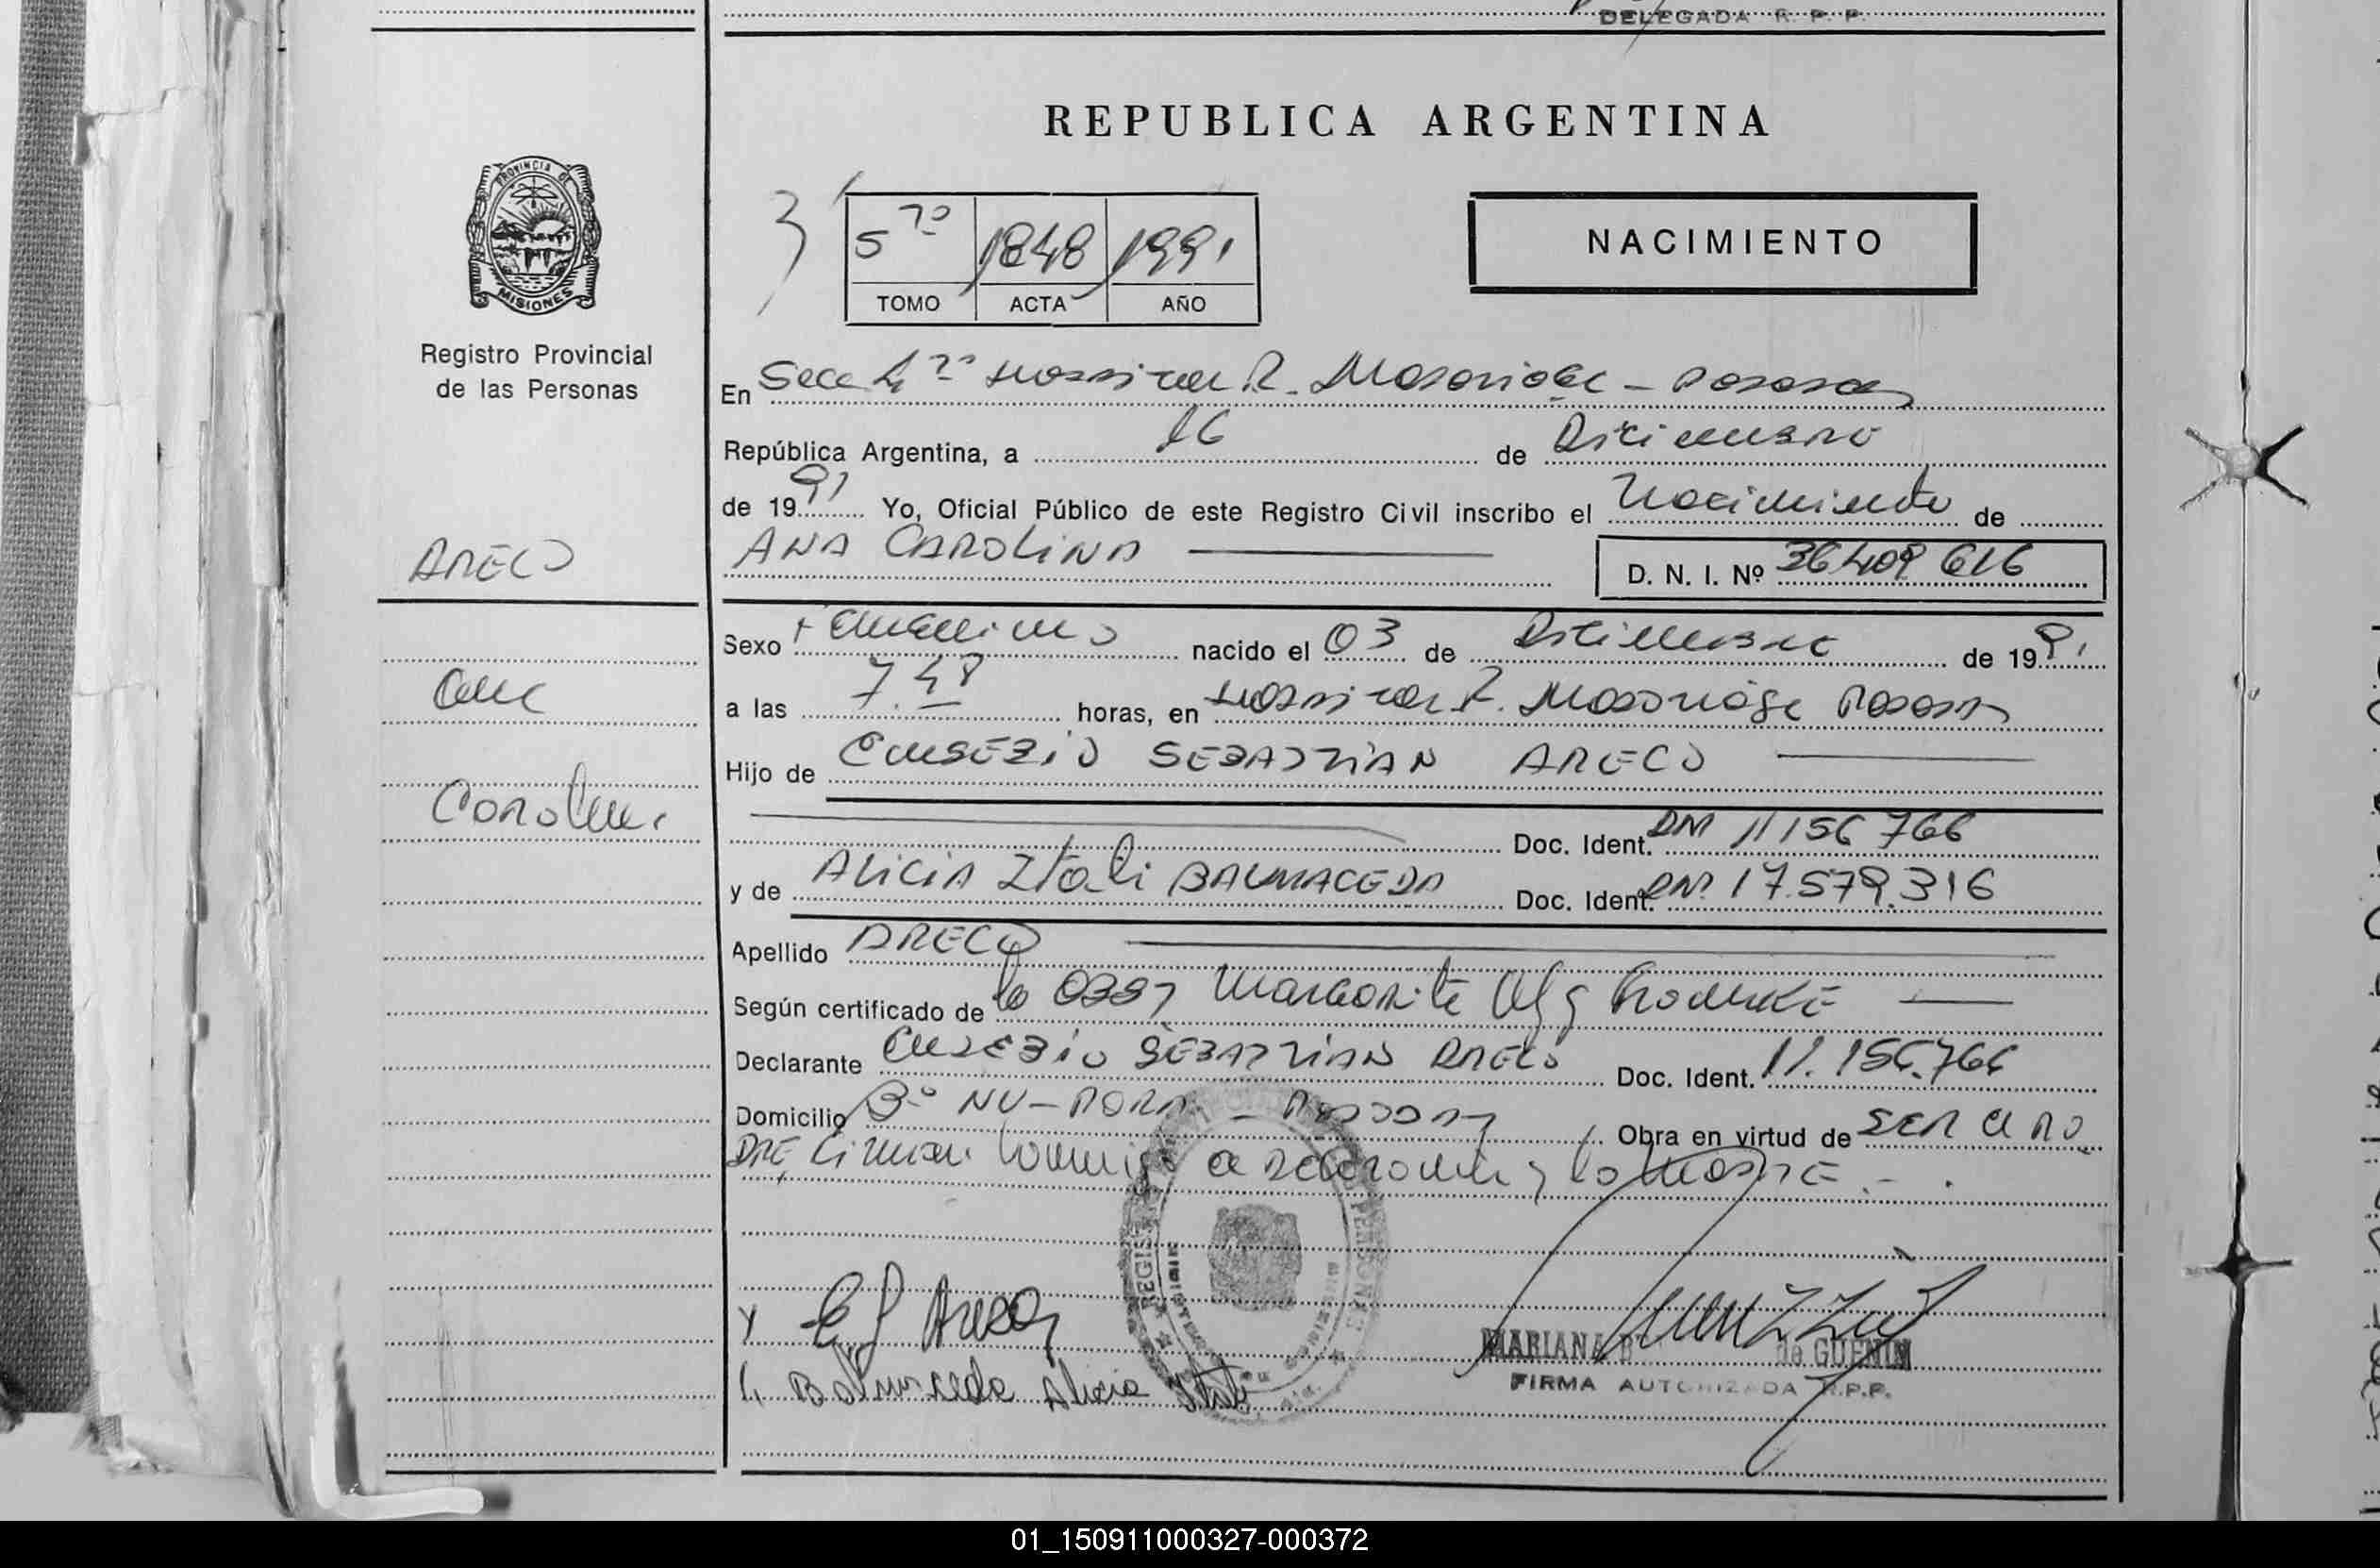 DELEGADA R. P. P.
REPUBLICA ARGENTINA
PROVINCIA DE
MISIONES
Registro Provincial
de las Personas
5 TO 1848 1991
TOMO ACTA AÑO
NACIMIENTO
En Secc 4 Hospital R. Madariaga - Posadas
República Argentina, a 16 de Diciembre
de 1991 Yo, Oficial Público de este Registro Civil inscribo el Nacimiento de
ARECO
ANA CAROLINA
D. N. I. Nº 36409616
Sexo Femenino nacido el 03 de Diciembre de 1991
Ana
a las 7.48 horas, en Hospital R. Madariaga Posadas
Hijo de EUSEBIO SEBASTIAN ARECO
Carolina
Doc. Ident. DNI 11156766
y de ALICIA Itati BALMACEDA Doc. Ident. DNI 17.579.316
Apellido ARECO
Según certificado de la Margarita
Declarante EUSEBIO SEBASTIAN ARECO Doc. Ident. 11.156.766
Domicilio Bº ÑU-PORA - POSADAS Obra en virtud de SER el PA
DRE, Firman conmigo el declarante y la MADRE.-
E S Areco
Balmaceda Alicia Itati
MARIANA de GUENIN
FIRMA AUTORIZADA R.P.P.
01_150911000327-000372